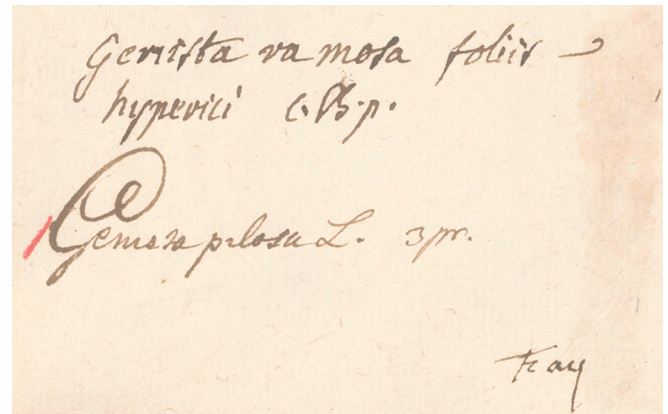 Genista ramosa foliis
hyperici C. B. p.
Genista pilosa L. 3 pr.